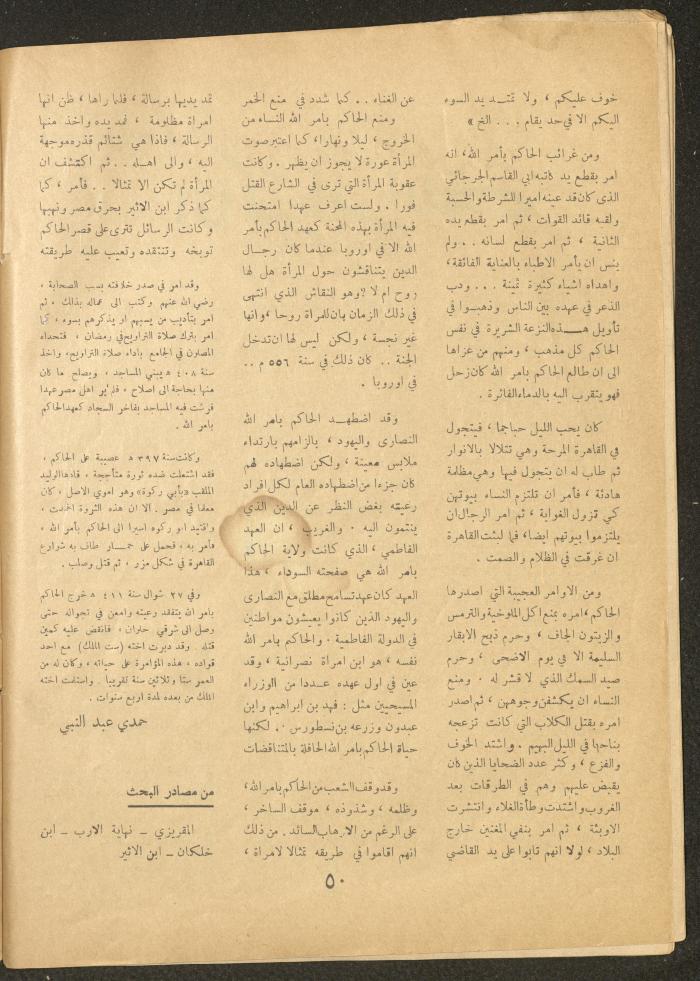 خوف عليكم ، ولا تمتـد يد السوء
اليكم الا في حد يقام . . . الخ »
ومن غرائب الحاكم بأمر الله، انه
امر بقطع يد كاتبه ابي القاسم الجرجائي
الذي كان قد عينه اميرا للشرطة والحسبة
ولقبه قائد القوات ، ثم امر بقطع يده
الثانية ، ثم امر بقطع لسانه . . ولم
ينس ان يأمر الاطباء بالعناية الفائقة،
واهداه اشياء كثيرة ثمينة . . . ودب
الذعر في عهده بين الناس وذهبـوا في
تأويل هـذه النزعة الشريرة في نفس
الحاكم كل مذهب ، ومنهم من عزاها
الى ان طالع الحاكم بامر الله كان زحل
فهو يتقرب اليه بالدماء الفائرة .
كان يحب الليل حباجما ، فيتجول
في القاهرة المرحة وهي تتلالا بالانوار
ثم طاب له ان يتجول فيها وهي مظلمة
هادئة ، فأمر ان تلتزم النساء بيوتهن
كي تزول الغواية ، ثم امر الرجال ان
يلتزموا بيوتهم ايضا، فما لبثت القاهرة
ان غرقت في الظلام والصمت .
ومن الاوامر العجيبة التي اصدرها
الحاكم، امره بمنع اكل الملوخية والترمس
والزيتون الجاف ، وحرم ذبح الابقار
السليمة الا في يوم الاضحى ، وحرم
صيد السمك الذي لا قشر له . ومنع
النساء ان يكشفن وجوههن ، ثم اصدر
امره بقتل الكلاب التي كانت تزعجه
بنباحها في الليل البهيم . واشتد الخوف
والفزع ، وكثر عدد الضحايا الذين كان
يقبض عليهم وهم في الطرقات بعد
الغروب واشتدت وطأة الغلاء وانتشرت
الاوبئة ، ثم امر بنفي المغنين خارج
البلاد ، لولا انهم تابوا على يد القاضي
عن الغناء . . كما شدد في منع الخمر
ومنع الحاكم بامر الله النساء من
الخروج ، ليلا ونهارا، كما اعتبر صوت
المرأة عورة لا يجوز ان يظهر . وكانت
عقوبة المرأة التي ترى في الشارع القتل
فورا . ولست اعرف عهدا امتحنت
فيه المرأة بهذه المحنة كعهد الحاكم بأمر
الله الا في اوروبا عندما كان رجـال
الدين يتناقشون حول المرأة هل لها
روح ام لا ؟ وهو النقاش الذي انتهى
في ذلك الزمان بان للمرأة روحا ، وانها
غير نجسة ، ولكن ليس لها ان تدخل
الجنة . . كان ذلك في سنة ٥٥٦ م . .
في اوروبا .
وقد اضطهـد الحاكم بامر الله
النصارى واليهود ، بالزامهم بارتداء
ملابس معينة ، ولكن اضطهاده لهم
كان جزءا من اضطهاده العام لكل افراد
رعيته بغض النظر عن الدين الذي
ينتمون اليه . والغريب ، ان العهد
الفاطمي ، الذي كانت ولاية الحاكم
بامر الله هي صفحته السوداء ، هذا
العهد كان عهد تسامح مطلق مع النصارى
واليهود الذين كانوا يعيشون مواطنين
في الدولة الفاطمية . والحاكم بامر الله
نفسه ، هو ابن امراة نصرانية ، وقد
عين في اول عهده عـددا من الوزراء
المسيحيين مثل : فهد بن ابراهيم وابن
عبدون وزرعه بن نسطورس . لكنها
حياة الحاكم بامر الله الحافلة بالمتناقضات
وقد وقف الشعب من الحاكم بامر الله،
وظلمه ، وشذوذه ، موقف الساخر ،
على الرغم من الارهاب السائد . من ذلك
انهم اقاموا في طريقه تمثالا لامراة ،
تمد يديها برسالة ، فلما راها ، ظن انها
امراة مظلومة ، فمد يده واخذ منها
الرسالة ، فاذا هي شتائم قذره موجهة
اليه ، والى اهـله . . ثم اكتشف ان
المرأة لم تكن الا تمثالا . . فأمر ، كما
كما ذكر ابن الاثير بحرق مصر ونهبها
وكانت الرسائل تترى على قصر الحاكم
توبخه وتنتقده وتعيب عليه طريقته
وقد امر في صدر خلافته بسب الصحابة ،
رضي الله عنهم وكتب الى عماله بذلك ، ثم
امر بتأديب من يسبهم او يذكرهم بسوء ، كما
امر بترك صلاة التراويح في رمضان ، فتحداه
المصلون في الجامع باداء صلاة التراويح، واخذ
سنة ٤٠٨ ه يبني المساجد ، ويصلح ما كان
منها بحاجة الى اصلاح ، فلم ير اهل مصر عهدا
فرشت فيه المساجد بفاخر السجاد كعهد الحاكم
بامر الله .
وكانت سنة ٣٩٧ ه عصيبة على الحاكم ،
فقد اشتعلت ضده ثورة متأججة ، قادها الوليد
الملقب «بأبي ركوة» وهو اموي الاصل ، كان
معلما في مصر . الا ان هذه الثورة اخمدت ،
واقتيد ابو ركوه اسيرا الى الحاكم بأمر الله ،
فأمر به ، فحمل على حمـار طاف به شوارع
القاهرة في شكل مزر ، ثم قتل وصلب .
وفي ٢٧ شوال سنة ٤١١ ه خرج الحاكم
بامر الله يتفقد رعيته وامعن في تجواله حتى
وصل الى شرقي حلوان ، فانقض عليه كمين
قتله . وقد دبرت اخته (ست الملك) مع احد
قواده ، هذه المؤامرة على حياته ، وكان له من
العمر ستا وثلاثين سنة تقريبا . واستلمت اخته
الملك من بعده لمدة اربع سنوات .
حمدي عبد النبي
من مصادر البحث
المقريزي ـ نهاية الارب ـ ابن
خلكان ـ ابن الاثير
٥٠